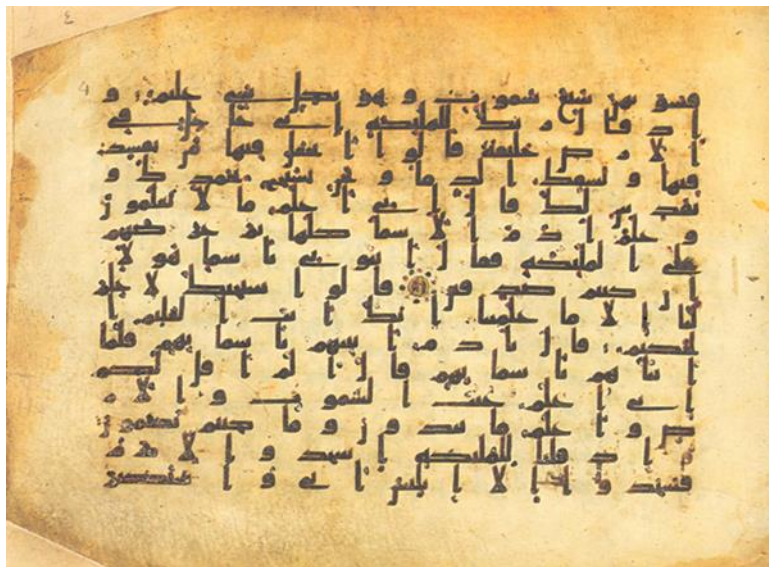 فسويهن سبع سموت و هو بكل شيء عليم و
اذ قال ربك للملئكة اني جاعل في
الارض خليفة قالوا اتجعل فيها من يفسد
فيها و يسفك الدما و نحن نسبح بحمدك و
نقدس لك قال اني اعلم ما لا تعلمون
و علم ادم الاسما كلها ثم عرضهم
على الملئكة فقال انبوني باسما هولا
ان كنتم صدقين قالوا سبحنك لا علم
لنا الا ما علمتنا انك انت العليم ا
لحكيم قال يادم انبيهم باسمايهم فلما
انباهم باسمايهم قال الم اقل لكم
اني اعلم غيب السموت و الار
ض و اعلم ما تبدون و ما كنتم تكتمون
و اذ قلنا للملئكة اسجدوا لادم
فسجدوا الا ابليس ابى و استكبر